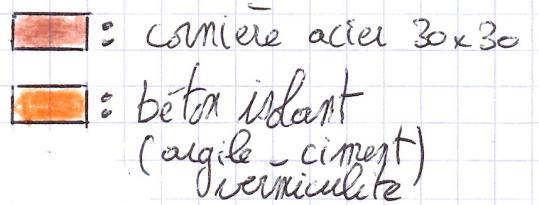 : cornière acier 30x30
: béton isolant
(argile - ciment)
vermiculite